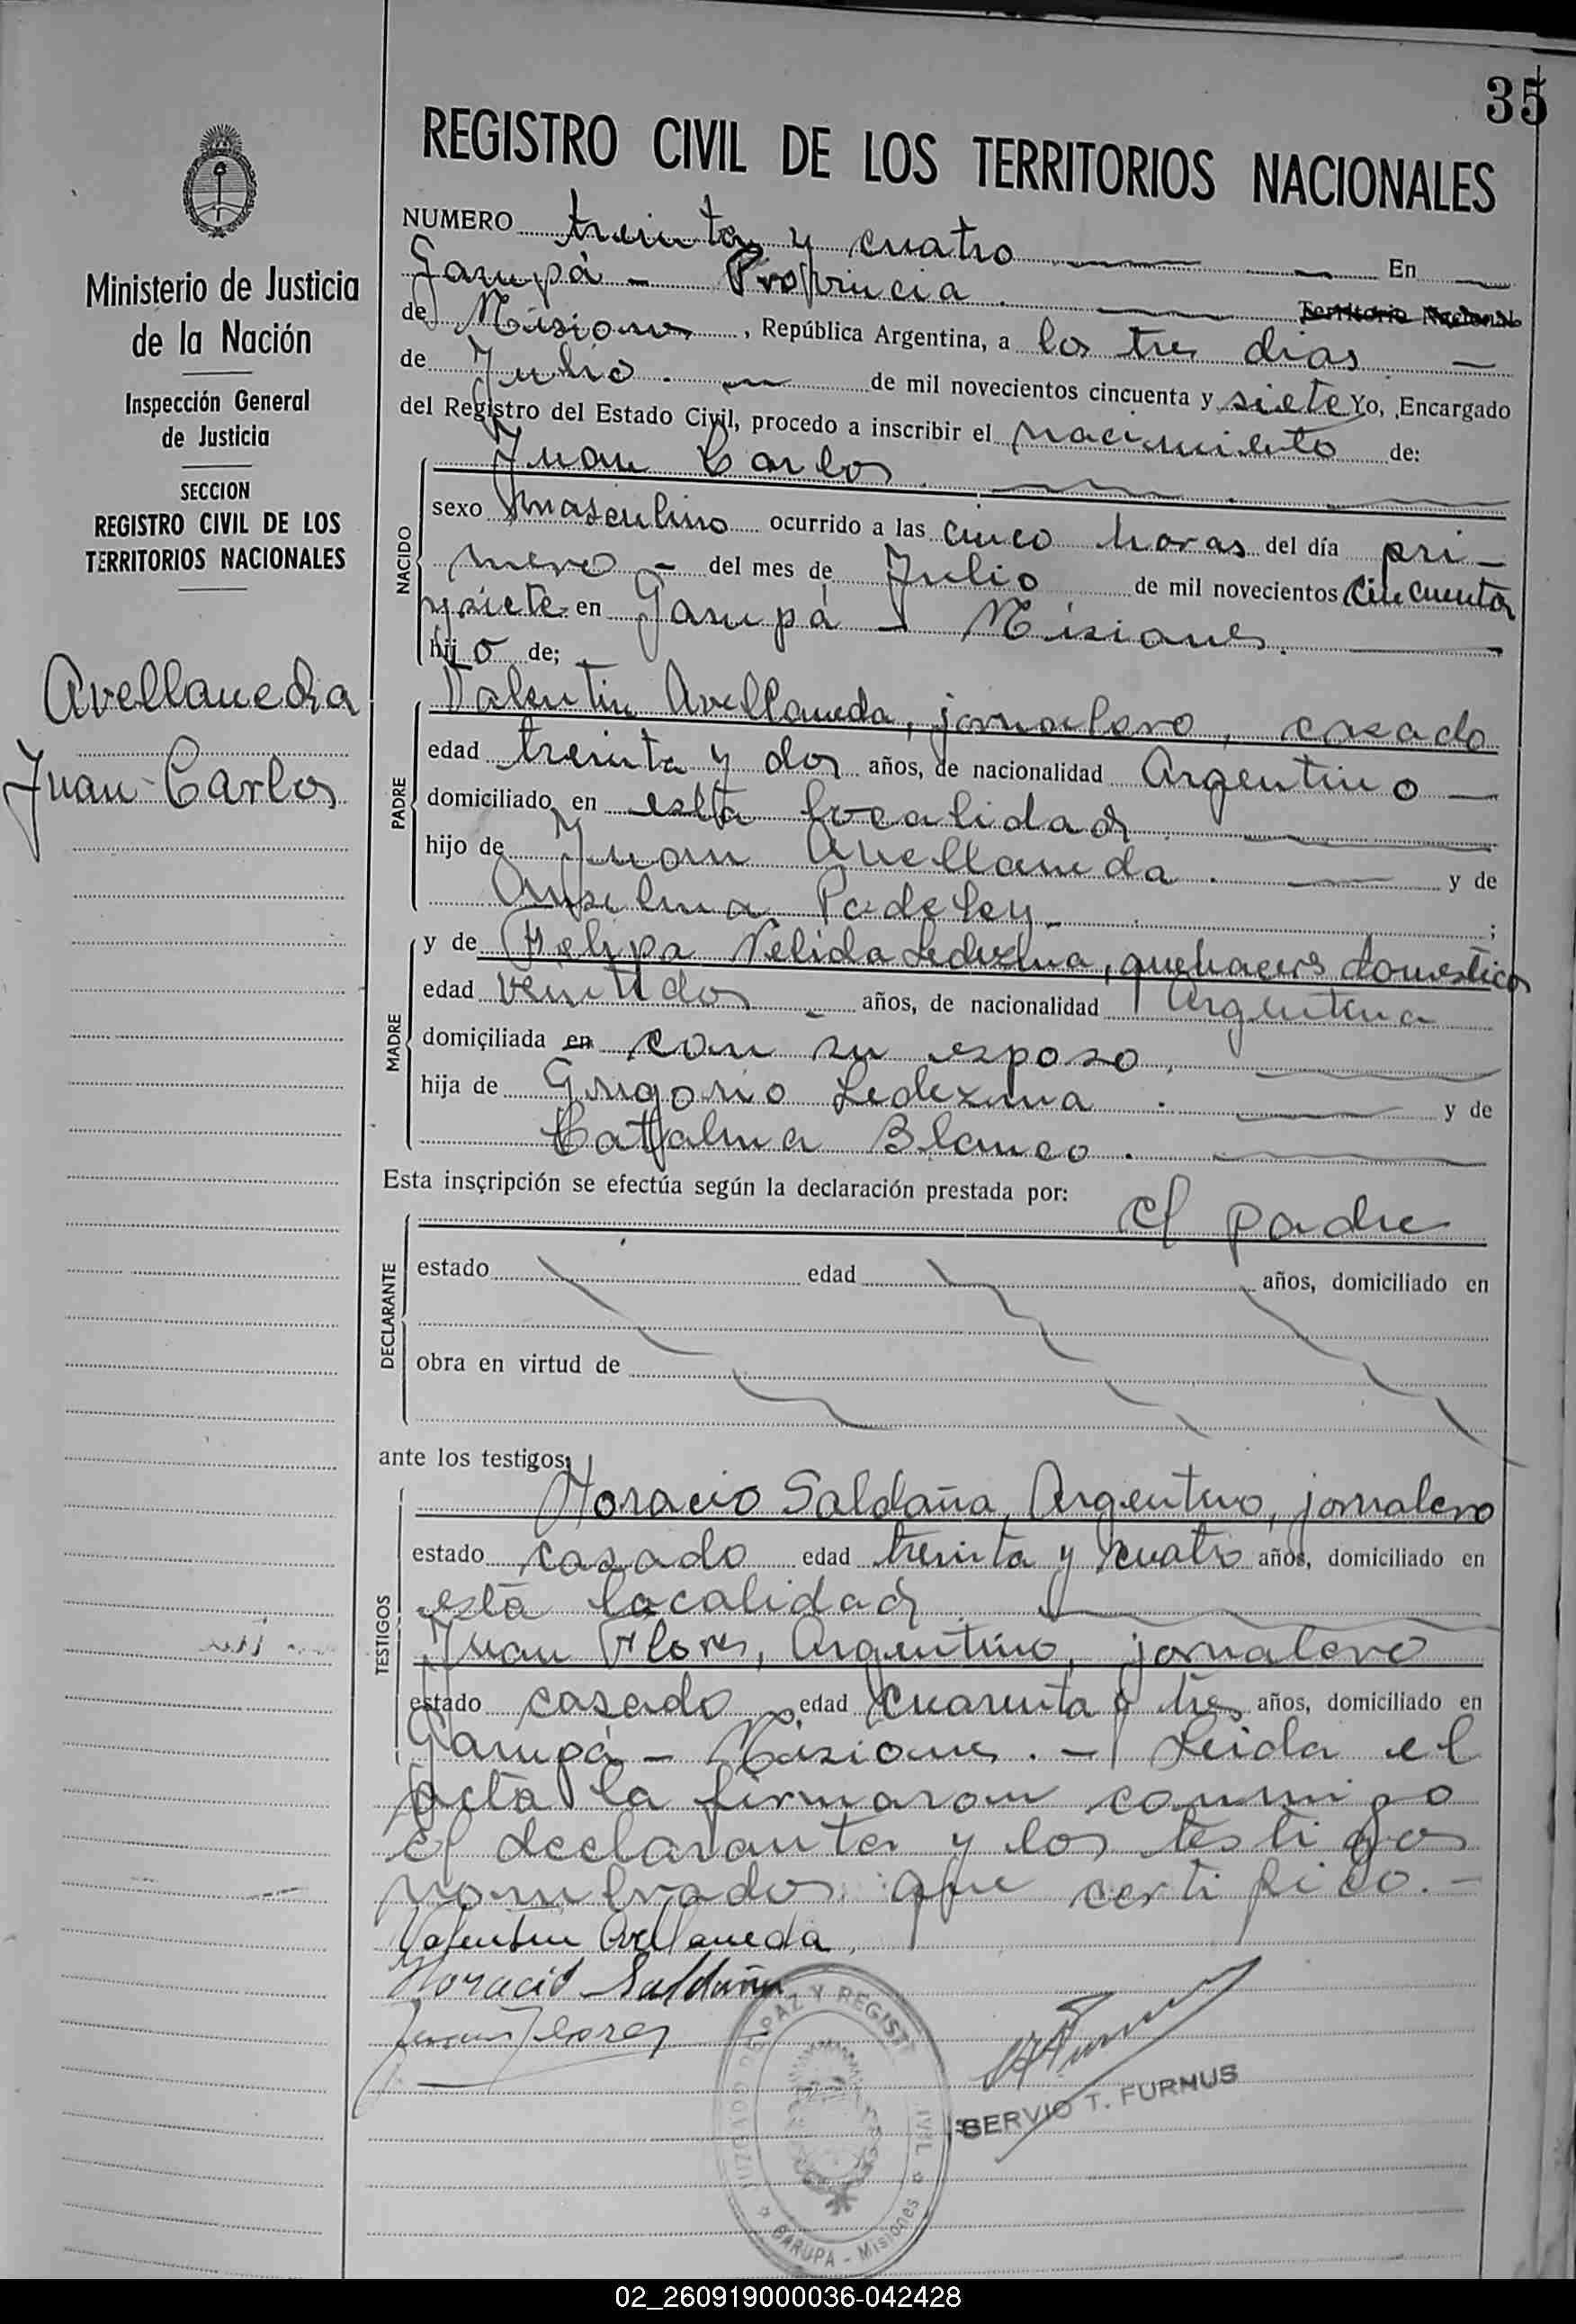 35
REGISTRO CIVIL DE LOS TERRITORIOS NACIONALES
Ministerio de Justicia
de la Nación
Inspección General
de Justicia
SECCION
REGISTRO CIVIL DE LOS
TERRITORIOS NACIONALES
Avellaneda
Juan Carlos
NUMERO treinta y cuatro En
Garupá - Provincia. Territorio Nacional
de Misiones, República Argentina, a los tres dias
de Julio. de mil novecientos cincuenta y siete Yo, Encargado
del Registro del Estado Civil, procedo a inscribir el nacimiento de:
NACIDO
Juan Carlos.
sexo masculino ocurrido a las cinco horas del día pri-
mero - del mes de Julio de mil novecientos cincuenta
y siete en Garupá - Misiones.
hijo de;
PADRE
Valentin Avellaneda, jornalero, casado
edad treinta y dos años, de nacionalidad Argentino
domiciliado en esta localidad.
hijo de Juan Avellaneda. y de
Anselma ;
MADRE
y de Felipa Nelida Ledezma, quehaceres domesticos
edad veintidos años, de nacionalidad Argentina
domiciliada en con su esposo,
hija de Gregorio Ledezma. y de
Catalina Blanco.
Esta inscripción se efectúa según la declaración prestada por:
el padre
DECLARANTE
estado edad años, domiciliado en
obra en virtud de
ante los testigos;
TESTIGOS
Horacio Saldaña, Argentino, jornalero
estado casado edad treinta y cuatro años, domiciliado en
esta localidad.
Juan Flores, Argentino, jornalero
estado casado edad cuarenta y tres años, domiciliado en
Garupá - Misiones. - Leida el
acta la firmaron conmigo
el declarante y los testigos
nombrados que certifico. -
Valentin Avellaneda
Horacio Saldaña
Juan Flores
SERVIO T. FURNUS
JUZGADO DE PAZ Y REGISTRO CIVIL
GARUPA - Misiones
02_260919000036-042428